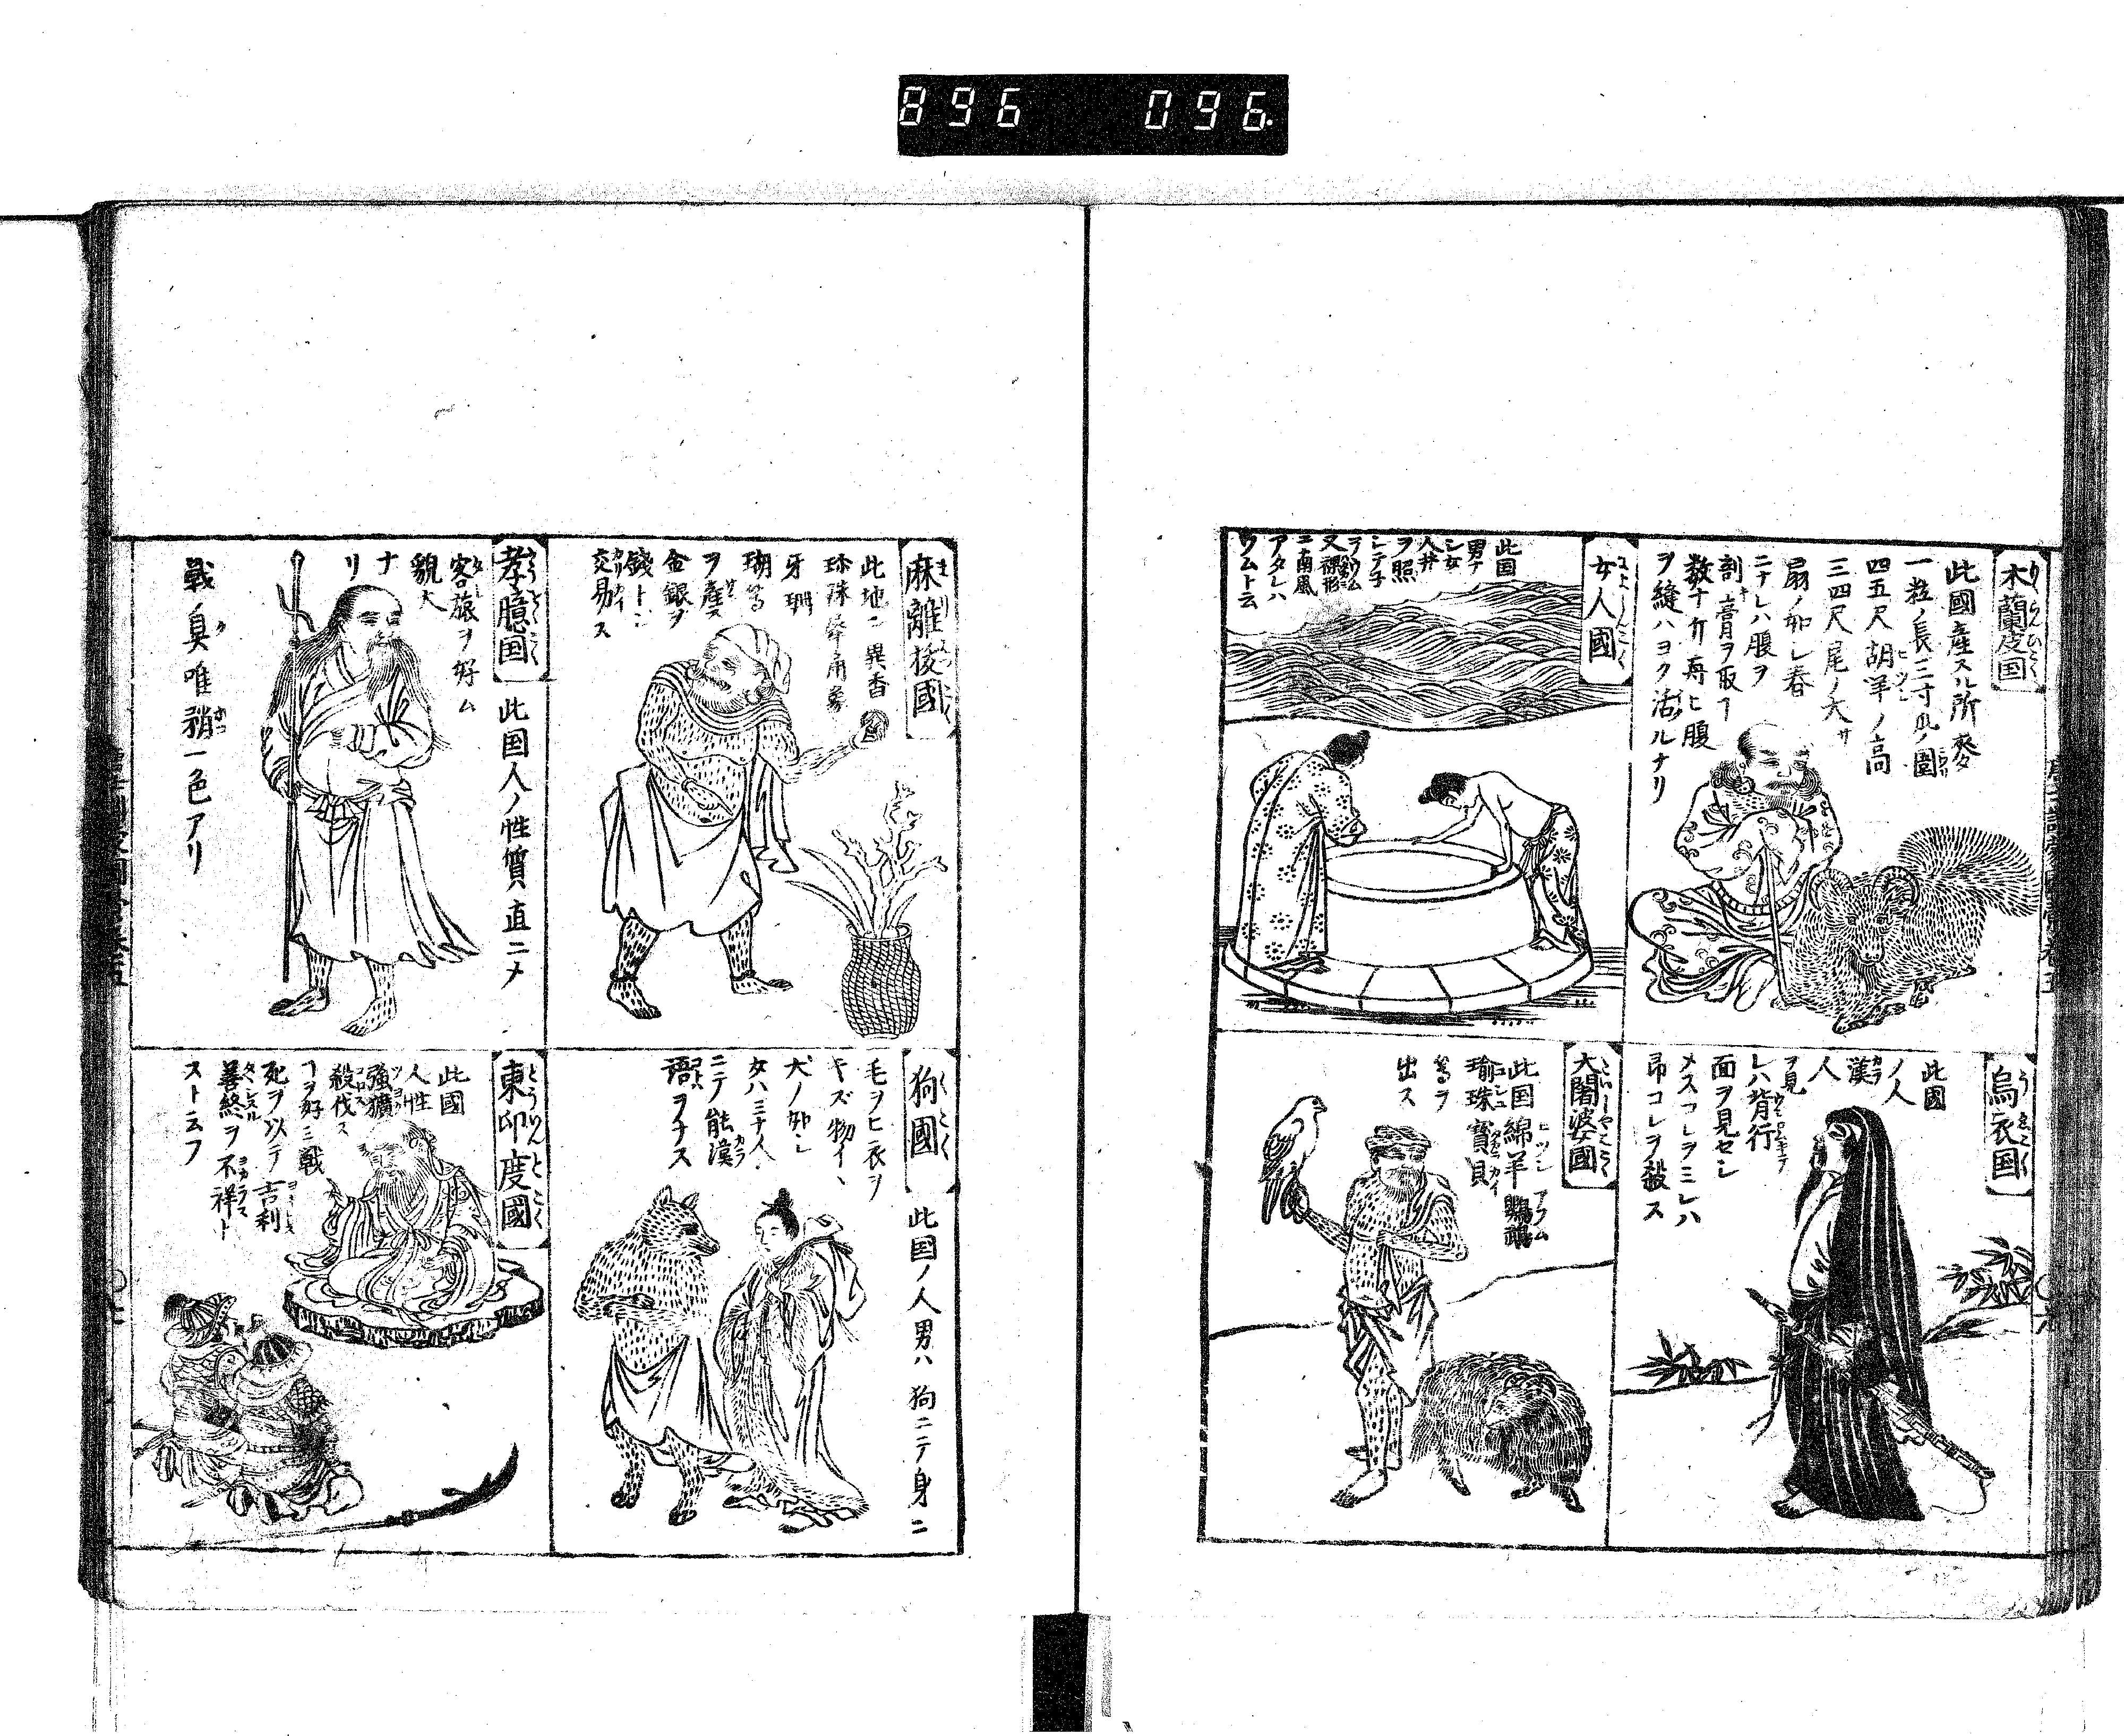 896 096
木蘭皮国
此國産スル所ノ麥
一粒ノ長三寸瓜ノ圍
四五尺胡羊ノ高
三四尺尾ノ大サ
扇ノ如シ春
ニナレハ腹ヲ
割膏ヲ取フ
数十斤再ヒ腹
ヲ縫ハヨク活ルナリ
女人國
此国
男ナ
シ女
人井
ヲ照
シテ子
ヲウム
又裸形
ニ南風
アタレハ
ウムト云
烏衣国
此國
ノ人
漢
人
ヲ見
レハ背行
面ヲ見セシ
メスコレヲミレハ
昂コレヲ殺ス
大闍婆國
此国綿羊鸚鵡
瑜珠寶貝
等ヲ
出ス
麻離抜國
此地ニ異香
珎珠犀角象
牙珊
瑚等
ヲ産ス
金銀ヲ
錢トシ
交易ス
狗國
此国ノ人男ハ狗ニテ身ニ
毛ヲヒ衣ヲ
キズ物イヽ
犬ノ如シ
女ハ三十人
ニテ能漢
語ヲナス
孝臆国
此国人ノ性質直ニメ
客旅ヲ好ム
貌大
ナ
リ
戰ノ具唯矟一色アリ
東印度國
此國
人性
強獷
殺伐ス
ヿヲ好ミ戰
死ヲ以テ吉利
善終ヲ不祥ト
スト云フ